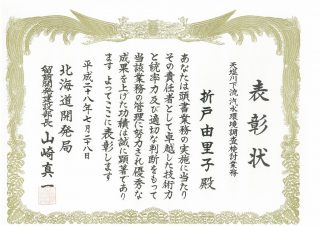 表彰状
天塩川下流 汽水環境調査検討業務
折戸由里子 殿
あなたは頭書業務の実施に当たり
その責任者として卓越した技術力
と統率力及び適切な判断をもって
当該業務の管理に努力され優秀な
成果を上げた功績は誠に顕著であり
ます よってここに表彰します
平成二十八年七月二十八日
北海道開発局
留萌開発建設部長 山崎真一